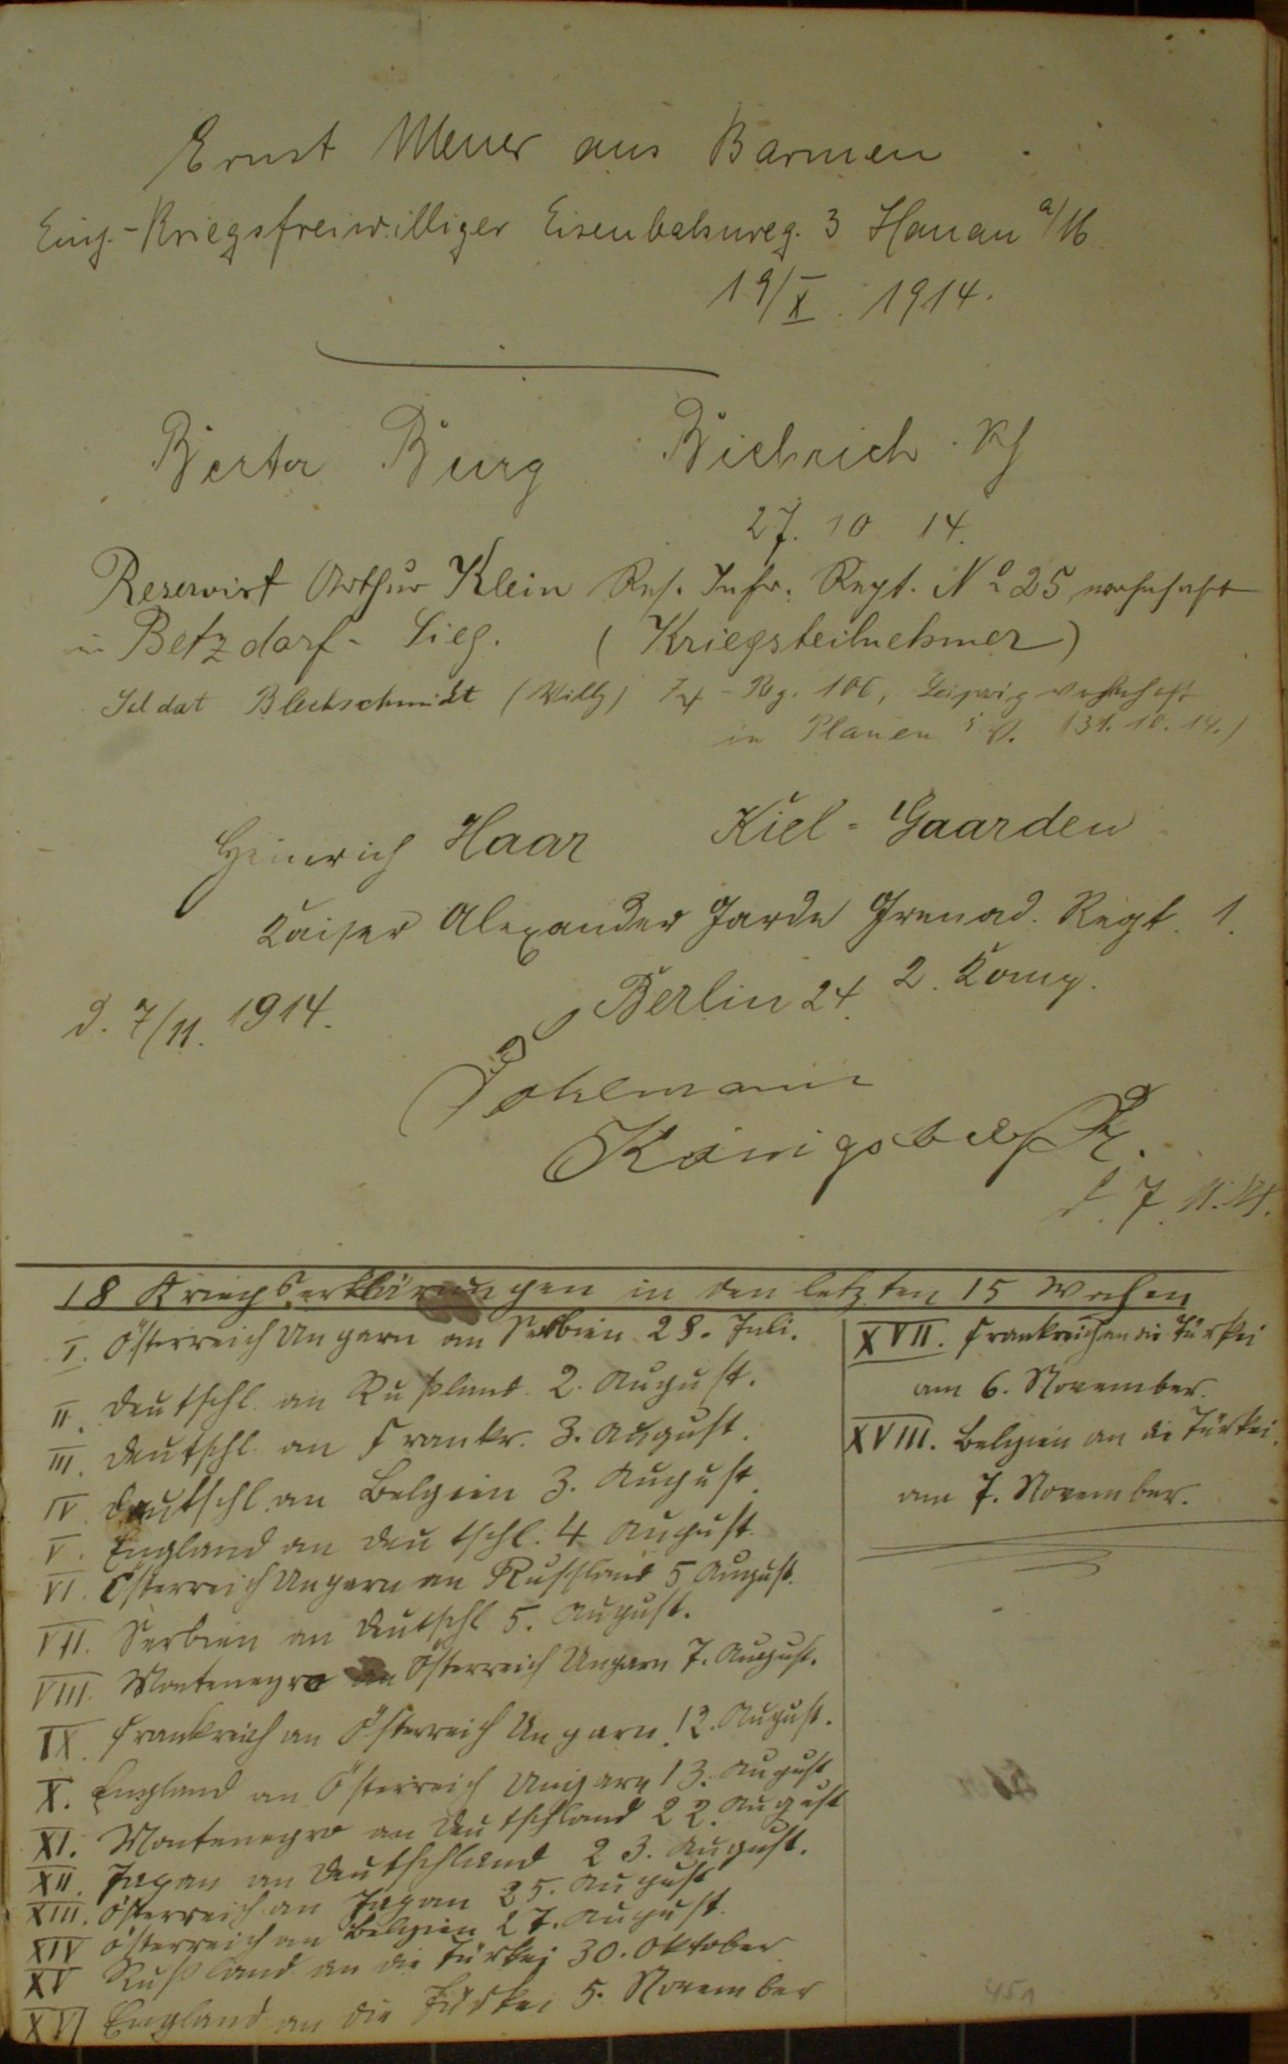 Ernst Meuer aus Barmen
Einj.-Kriegsfreiwilliger Eisenbahnreg. 3 Hanau a/M
19/X. 1914.
Berta Burg Biebrich Rh
27. 10. 14.
Reservist Arthur Klein Res. Infr. Regt. No 25 wohnhaft
in Betzdorf - Sieg. (Kriegsteilnehmer)
Soldat Blechschmidt (Willy) Inf - Rg. 106, Leipzig wohnhaft
in Plauen i V. (31. 10. 14.)
Heinrich Haar Kiel - Gaarden
Kaiser Alexander Garde Grenad. Regt. 1.
Berlin 24. 2. Komp.
d. 7/11. 1914.
Pohlmann
Königsberg Pr.
d. 7. 11. 14.
18 Kriegserklärungen in den letzten 15 Wochen
I. Österreich Ungarn an Serbien 28. Juli.
II. Deutschl. an Rußland. 2. August.
III. Deutschl. an Frankr. 3. August.
IV. Deutschl. an Belgien 3. August.
V. England an Deutschl. 4 August.
VI. Österreich Ungarn an Russland 5 August.
VII. Serbien an Deutschl 5. August.
VIII. Montenegro an Österreich Ungarn 7. August.
IX. Frankreich an Österreich Ungarn. 12. August.
X. England an Österreich Ungarn 13. August
XI. Montenegro an Deutschland 22. August
XII. Japan an Deutschland 23. August.
XIII. Österreich an Japan 25. August
XIV Österreich an Belgien 27. August.
XV Rußland an die Türkei 30. Oktober
XVI England an die Türkei 5. November
XVII. Frankreich an die Türkei
am 6. November.
XVIII. Belgien an die Türkei.
am 7. November.
451